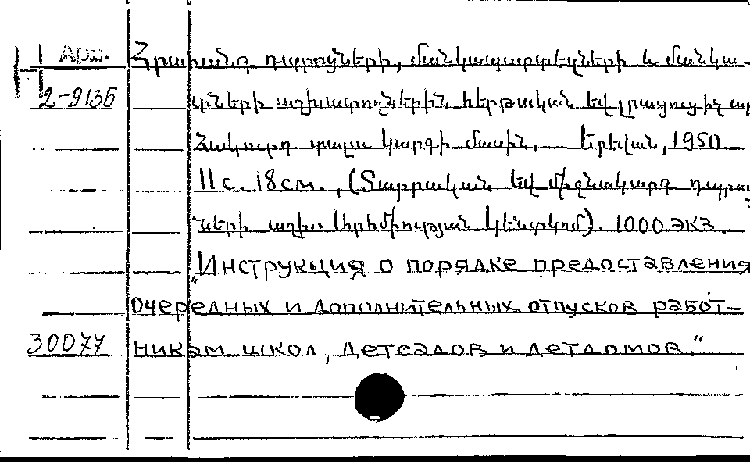 1 Арм. Հրահանգ դպրոցների, մանկապարտեզների և մանկա-
2-9135 տների աշխատողներին հերթական եվ լրացուցիչ ար
ձակուրդ տալու կարգի մասին. Երեվան, 1950
11 с. 18 см., (Տարրական եվ միջնակարգ դպրոց
ների աշխ. Արհմիության կենտկոմ). 1000 экз.
"Инструкция о порядке предоставления
очередных и дополнительных отпусков работ-
30077 никам школ, детсадов и детдомов."